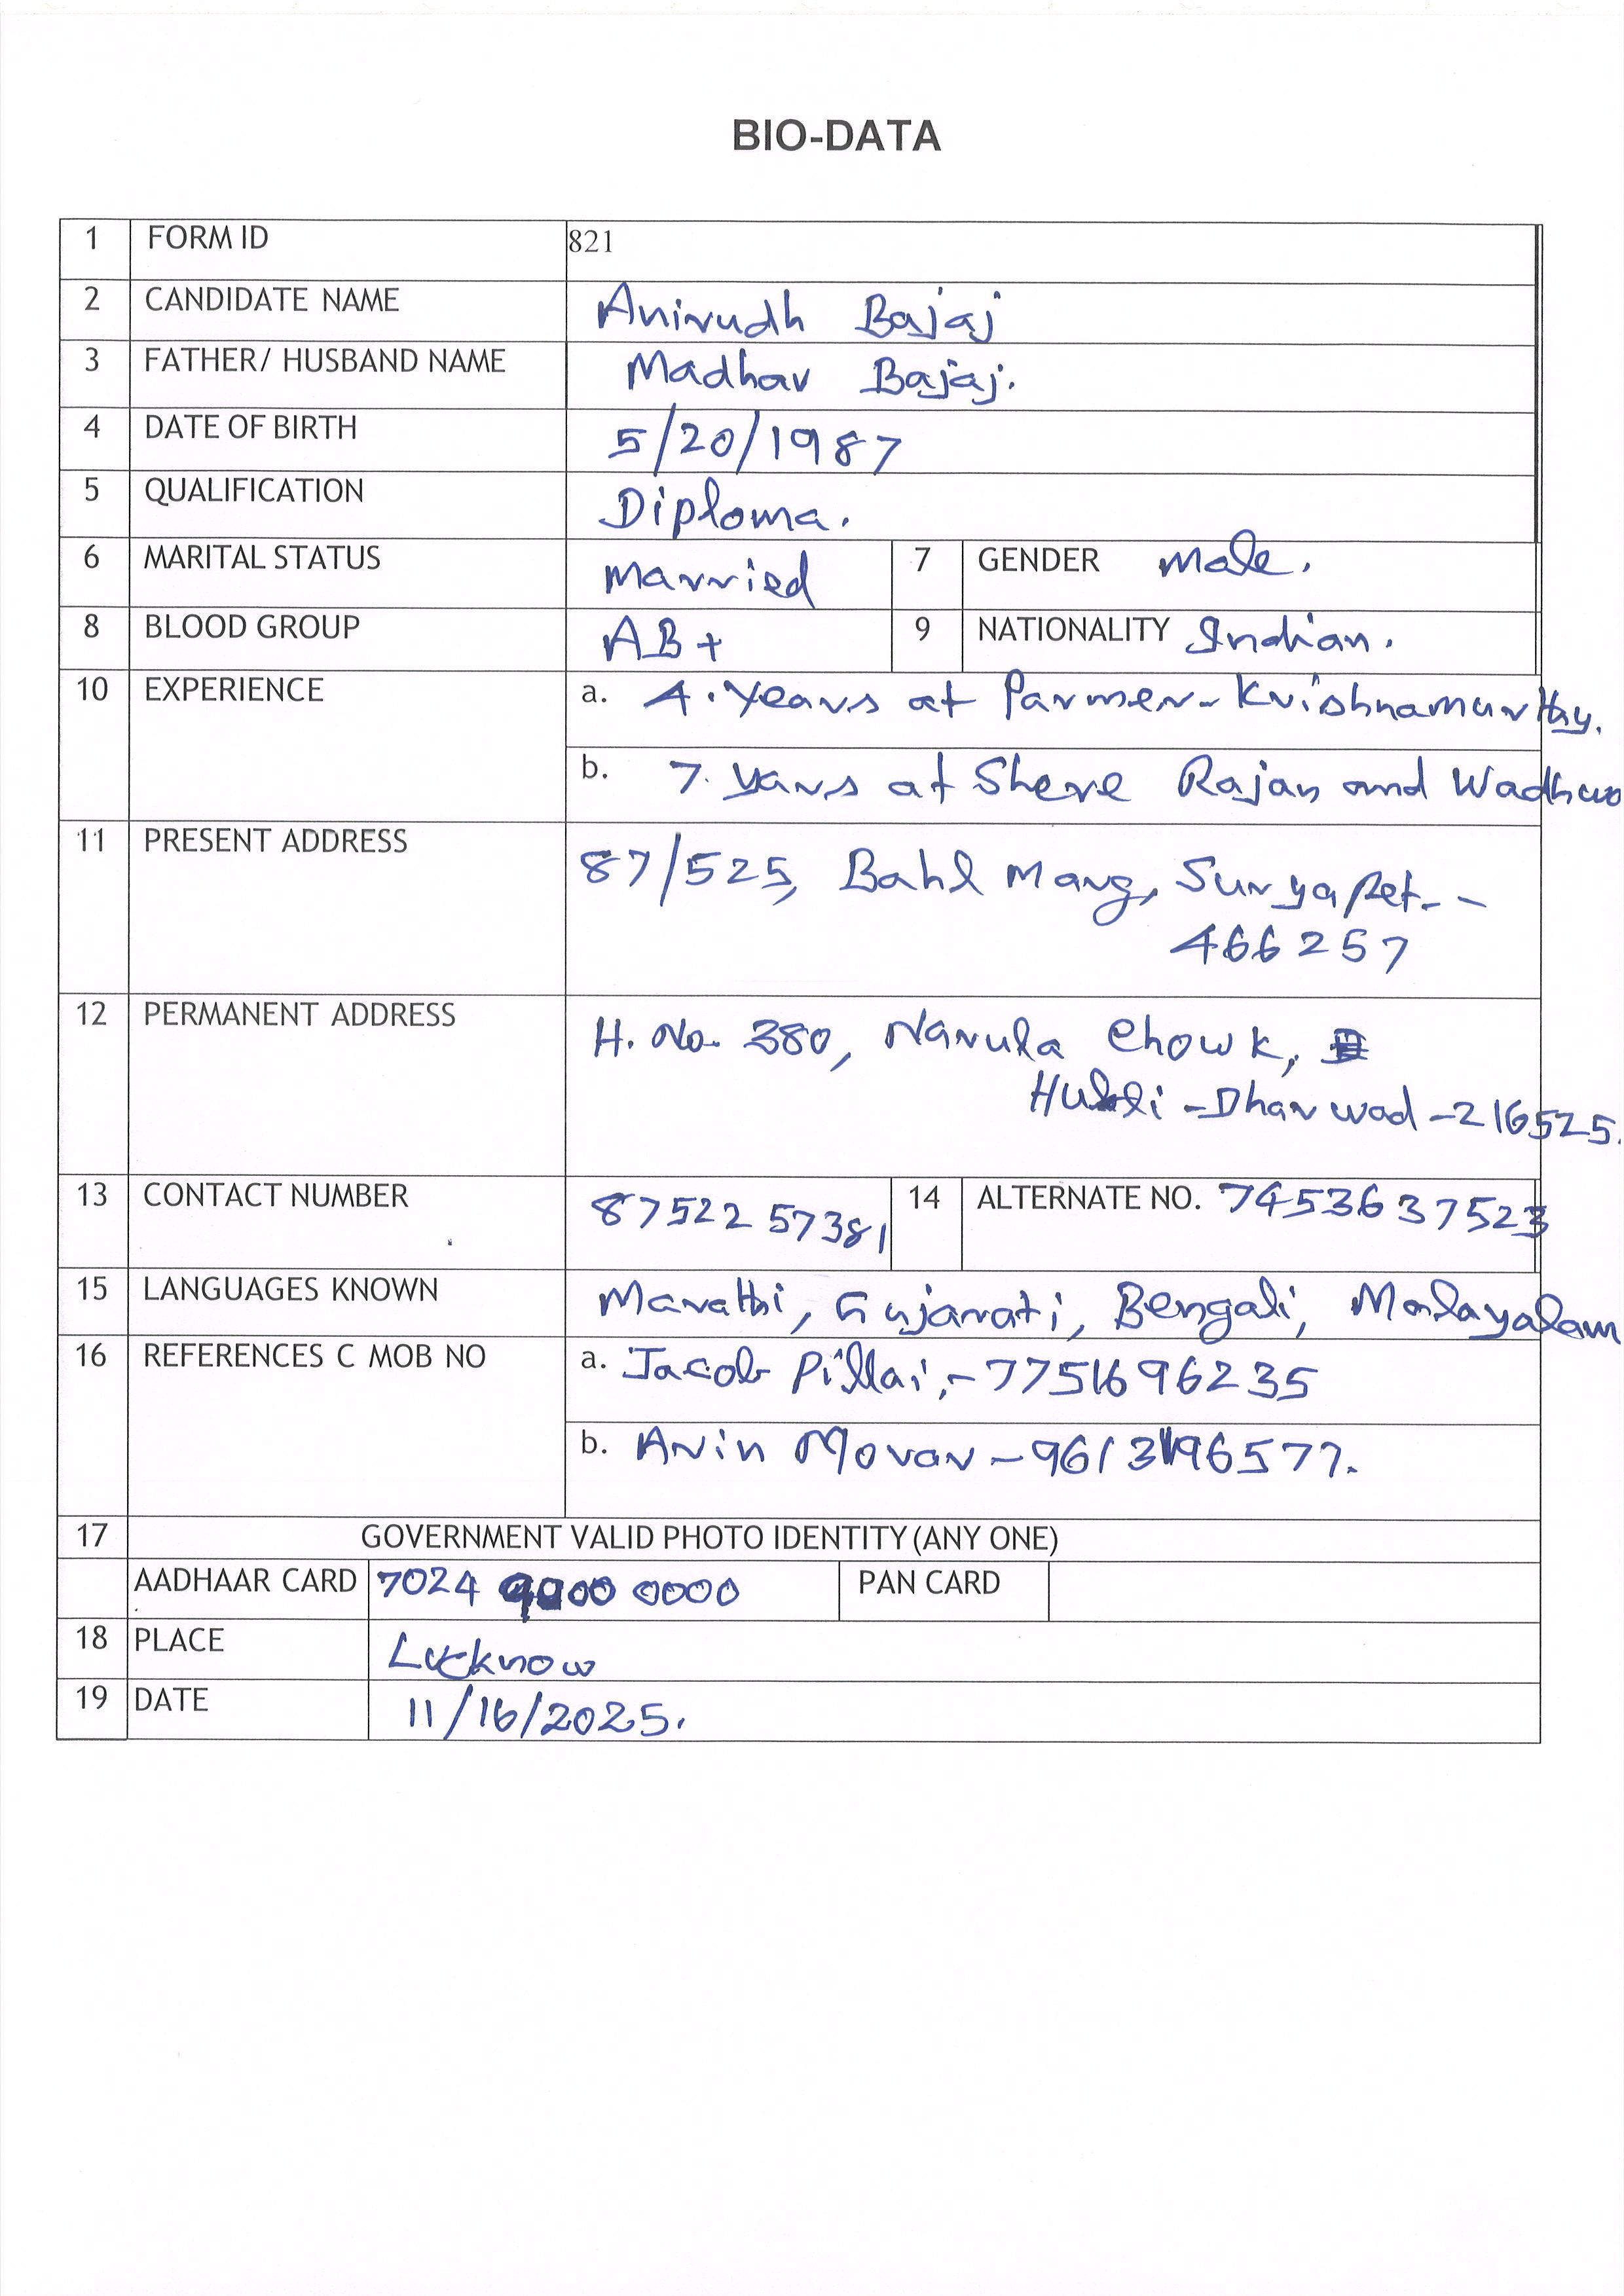 BIO-DATA
1 FORM ID 821
2 CANDIDATE NAME Anirudh Bajaj
3 FATHER/ HUSBAND NAME Madhav Bajaj.
4 DATE OF BIRTH 5/20/1987
5 QUALIFICATION Diploma.
6 MARITAL STATUS Married 7 GENDER Male.
8 BLOOD GROUP AB+ 9 NATIONALITY Indian.
10 EXPERIENCE a. 4. Years at Parmer-Krishnamurthy.
b. 7. Years at Shere Rajan and Wadhwa
11 PRESENT ADDRESS 87/525, Bahl Marg, Suryapet--
466257
12 PERMANENT ADDRESS H. No. 380, Narula Chowk,
Hubli-Dharwad-216525.
13 CONTACT NUMBER 87522 57381 14 ALTERNATE NO. 74536 37523
15 LANGUAGES KNOWN Marathi, Gujarati, Bengali, Malayalam
16 REFERENCES C MOB NO a. Jacob Pillai,-7751696235
b. Arin Movar-9613196577.
17 GOVERNMENT VALID PHOTO IDENTITY (ANY ONE)
AADHAAR CARD 7024 0000 PAN CARD
18 PLACE Lucknow
19 DATE 11/16/2025.